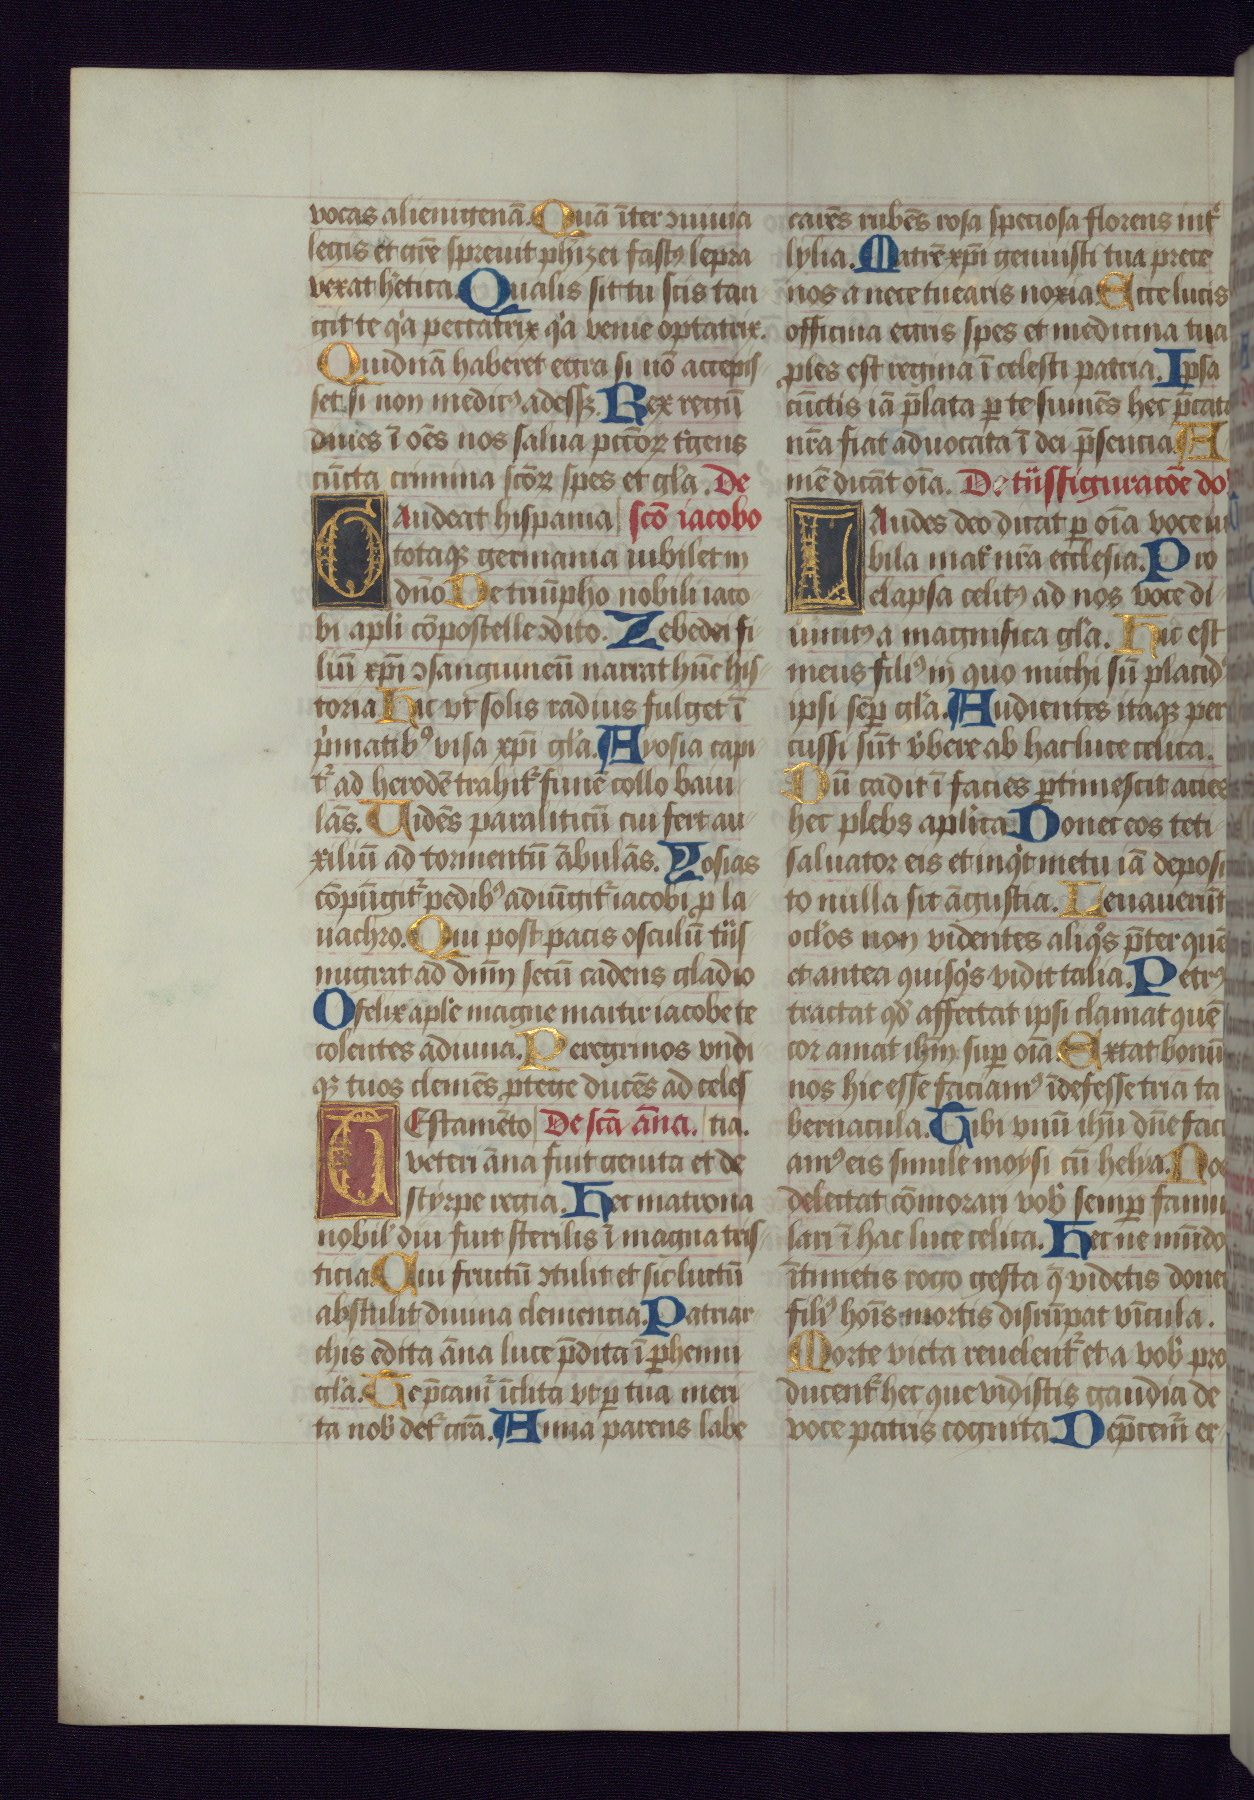 vocas alienigenā. Quā īter ↄuiuia
legis et gr̄e spreuit phizei fastꝰ lepra
vexat hr̄etica. Qualis sit tu scis tan
git te qͣ peccatrix qͣ venie optatrix.
Quidnā haberet egra si nō accepis
set. si non medicꝰ adessꝫ. Rex regū
diues ī oēs nos salua pctōꝝ tͥgens
cūcta crimina scōꝝ spes et gl̄a. De
Gaudeat hispania scō iacobo
totaqꝫ germania iubilet in
dn̄o De triūpho nobili iaco
bi apl̄i cōpostelle ↄdito. Zebedei fi
liū xp̄i ↄsanguineū narrat hūc his
toria. Hic vt solis radius fulget ī
pͥmatibꝰ visa xp̄i gl̄a. A yosia capi
tͬ ad herodē trahitͬ funē collo baiu
lās. Uidēs paraliticū cui fert au
xiliū ad tormentū ābulās. Yosias
cōpūgitͬ pedibꝰ adiūgitͬ iacobi ꝓ la
uachro. Qui post pacis osculū trͣs
migrat ad dn̄m secū cadens gladio
O felix apl̄e magne martir iacobe te
colentes adiuua. Peregrinos vndi
qꝫ tuos clemēs ꝓtege ducēs ad celes
Testamēto De scā āna. tia.
veteri āna fuit genita et de
styrpe regia. Hec matrona
nobil' diu fuit sterilis ī magna tris
ticia. Cui fructū ↄtulit et sic luctū
abstulit diuina clemencia. Patriar
chis edita āna luce p̄dita ī ꝑhenni
gl̄a. Te p̄camͬ īclita vt ꝑ tua meri
ta nob' detͬ gr̄a. Anna parens labe
carēs rubēs rosa speciosa florens intͬ
lylia. Matrē xp̄i genuisti tua prece
nos a nece tuearis noxia. Ecce lucis
officina egris spes et medicina tua
ꝓles est regina ī celesti patria. Ipsa
cūctis iā p̄lata ꝑ te sumēs hec p̄cata
nr̄a fiat aduocata ī dei p̄sencia. A
mē dicāt oīa. De trͣsfiguracōe do
Laudes deo dicat ꝑ oīa voce iu
bila matͬ nr̄a ecclesia. Pro
elapsa celitꝰ ad nos voce di
uinitꝰ a magnifica gl̄a. Hic est
meus filiꝰ in quo michi sū placidꝰ
ipsi sēꝑ gl̄a. Audientes itaqꝫ per
cussi sūt v̓bere ab hac luce celica.
Dū cadit ī facies ꝑtimescit acies
hec plebs apl̄ica. Donec eos teti
saluator eis et inqͥt metu iā deposi
to nulla sit āgustia. Leuauerūt
ocl̓os non videntes aliqͦs p̄ter quē
et antea quisqͥs vidit talia. Petrꝰ
tractat qd̓ affectat ipsi clamat quē
cor amat ih̄m suꝑ oīa Extat bonū
nos hic esse faciamꝰ īdefesse tria ta
bernacula. Tibi vnū ih̄u dn̄e faci
amꝰ eis simile moysi cū helya. Nos
delectat cōmorari vob' semꝑ famu
lari ī hac luce celica. Hec ne mūdo
ītimetis rogo gesta q̄ videtis donec
filiꝰ hoīs mortis disrūpat vīcula.
Morte victa reuelentͬ et a vob' pro
ducentͬ hec que vidistis gaudia de
voce patris cognita. Dep̄cemͬ er